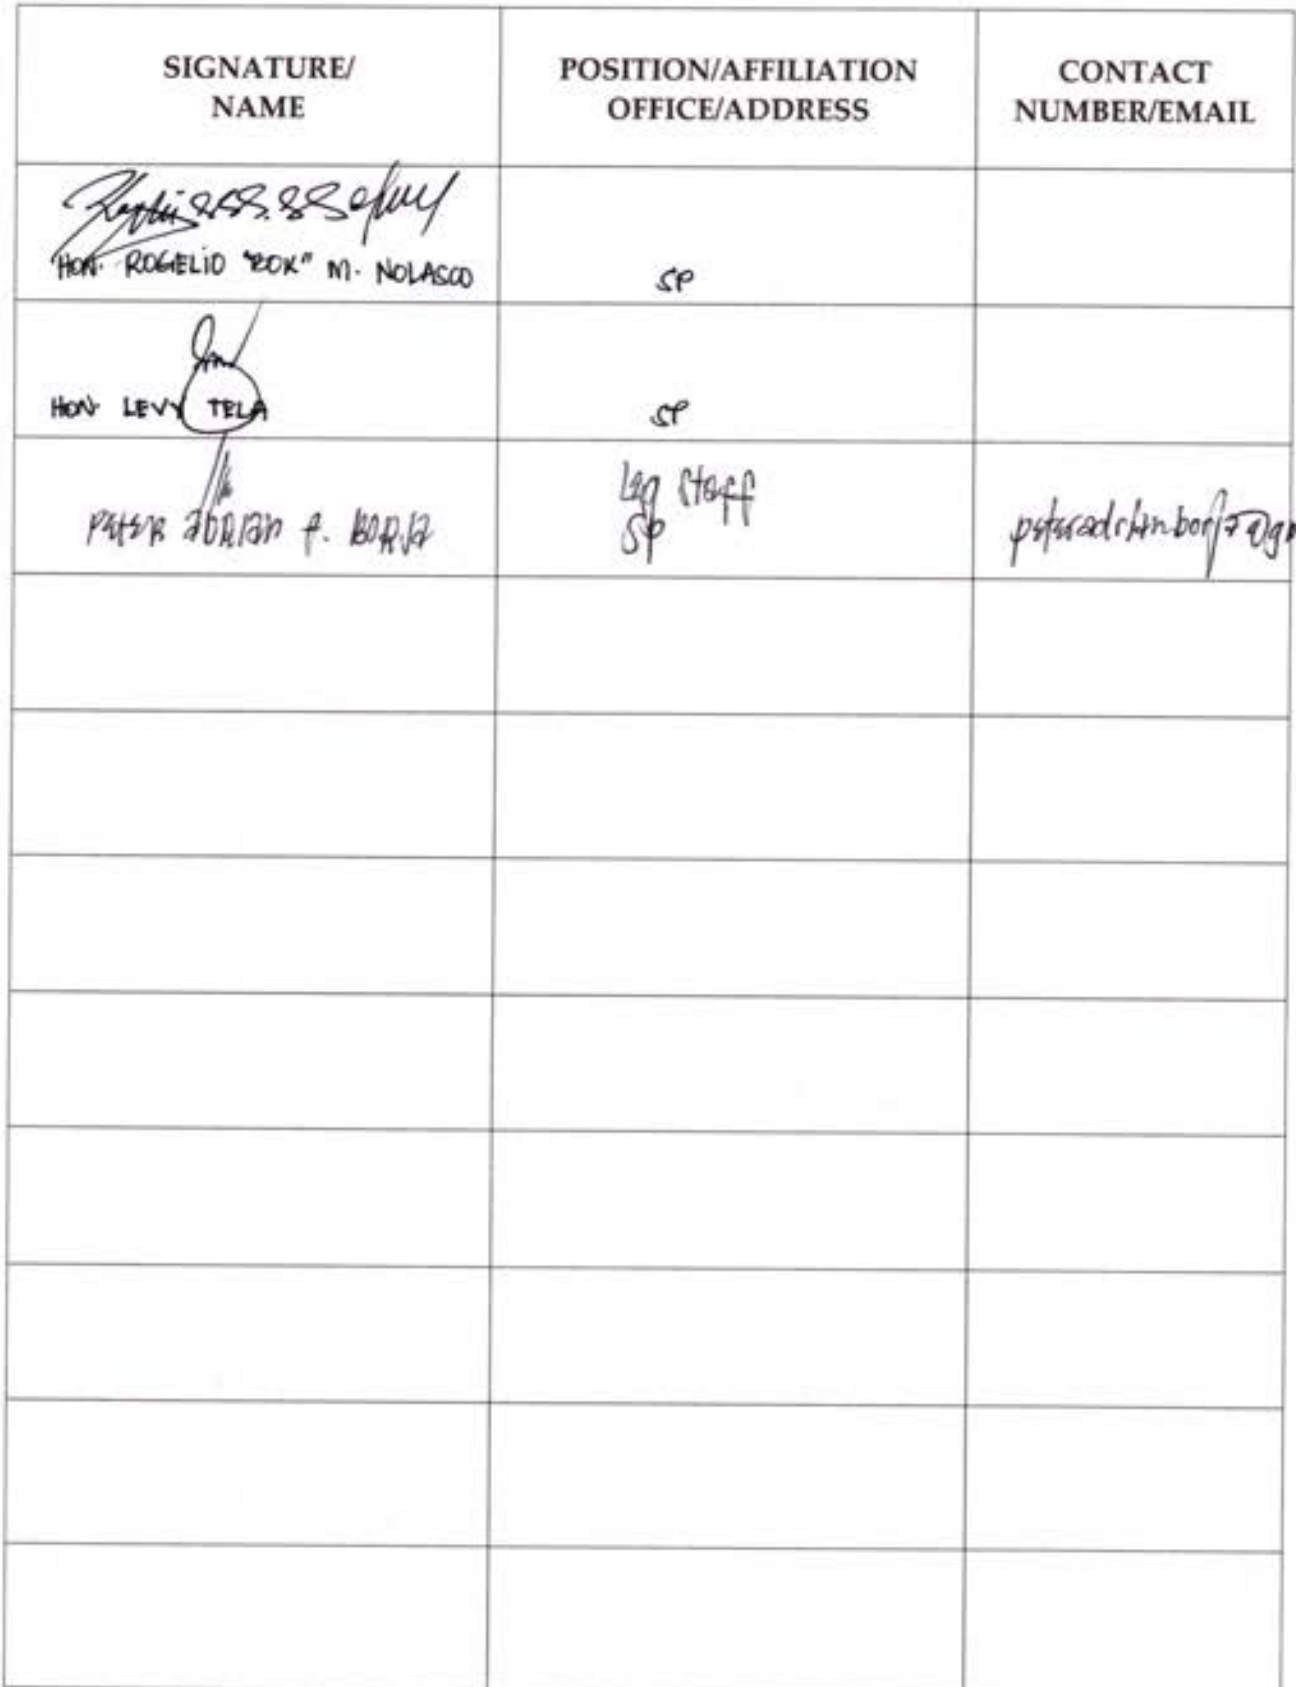 SIGNATURE/
NAME
POSITION/AFFILIATION
OFFICE/ADDRESS
CONTACT
NUMBER/EMAIL
HON. ROGELIO "ROK" M. NOLASCO
SP
HON. LEVY TELA
SP
PETER ADRIAN P. BORJA
Leg Staff
SP
peteradrianborja@g